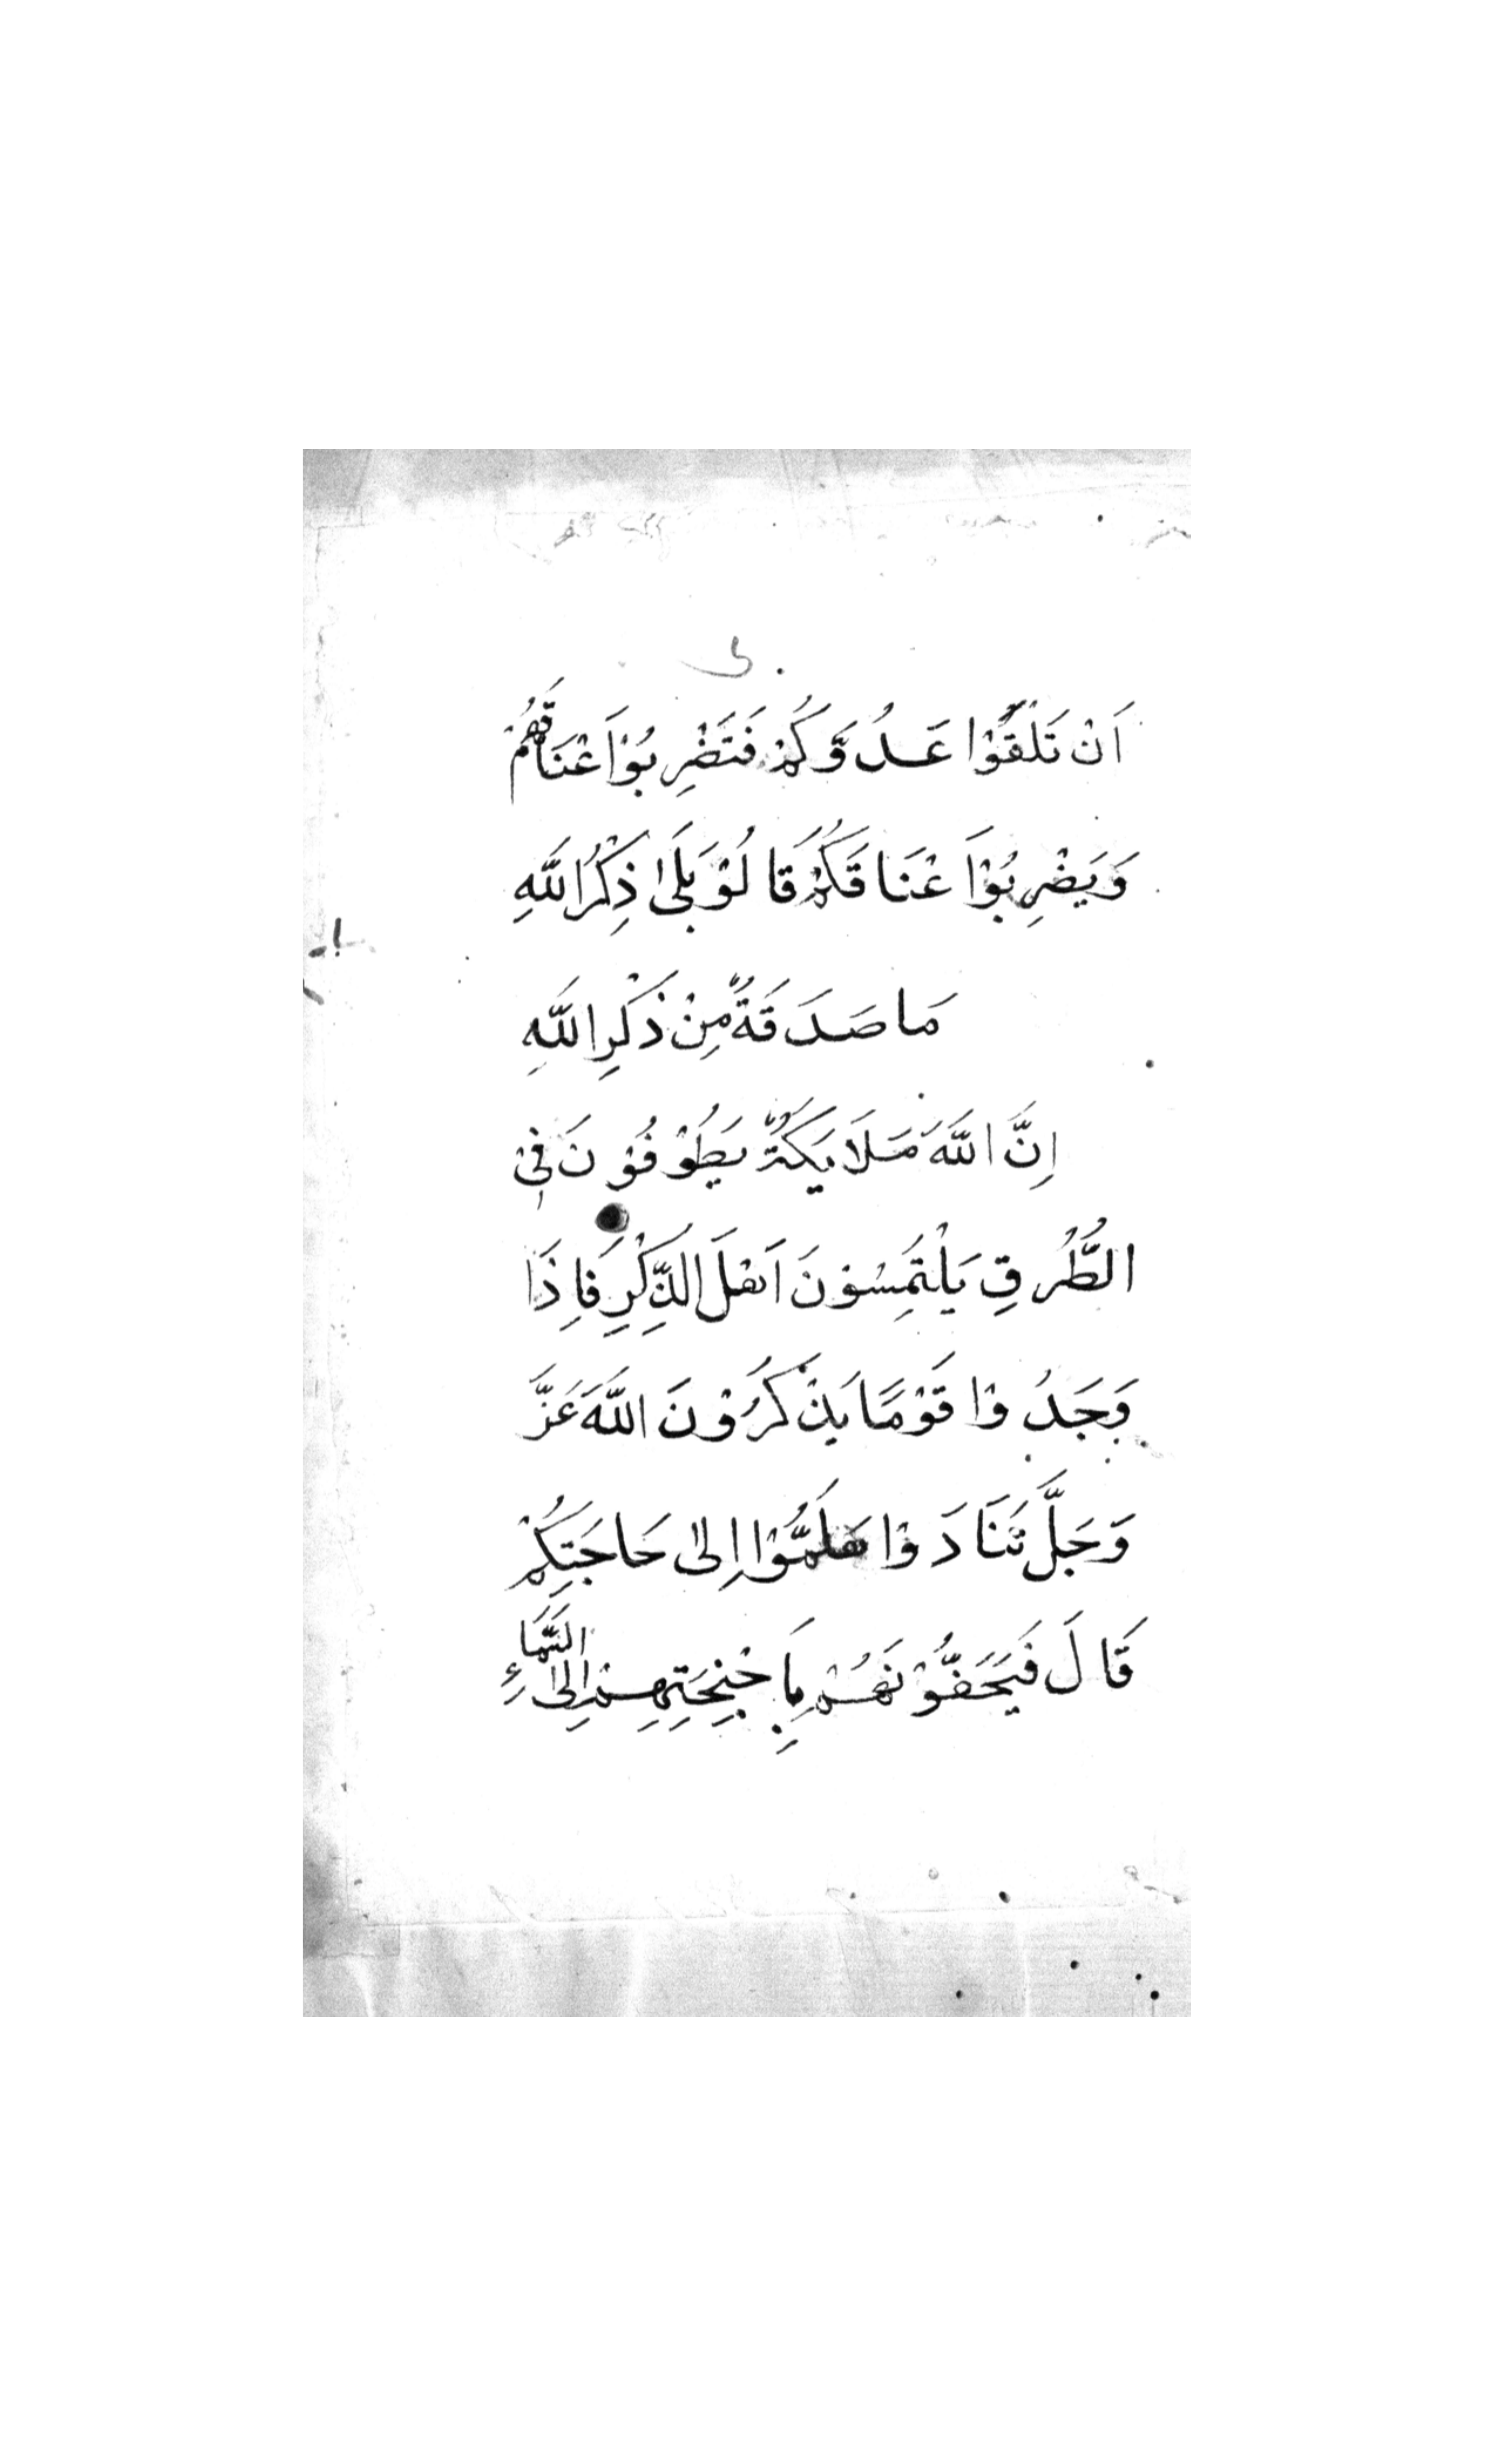 اَنْ تَلْقَوْا عَدُوَّكُمْ فَتَضْرِبُوْا اَعْنَاقَهُمْ
وَيَضْرِبُوْا اَعْنَاقَكُمْ قَالُوْ بَلَىٰ ذِكْرُ اللّٰهِ
مَا صَدَقَةٌ مِنْ ذِكْرِ اللّٰهِ
اِنَّ اللّٰهَ مَلَايِكَةٌ يَطُوْفُوْنَ فِىْ
الطُّرُقِ يَلْتَمِسُوْنَ اَهْلَ الذِّكْرِ فَاِذَا
وَجَدُوْا قَوْمًا يَذْكُرُوْنَ اللّٰهَ عَزَّ
وَجَلَّ تَنَادَوْا هَلُمُّوْا اِلىٰ حَاجَتِكُمْ
قَالَ فَيَحُفُّوْنَهُمْ بِاَجْنِحَتِهِمْ اِلىَ السَّمَاءِ